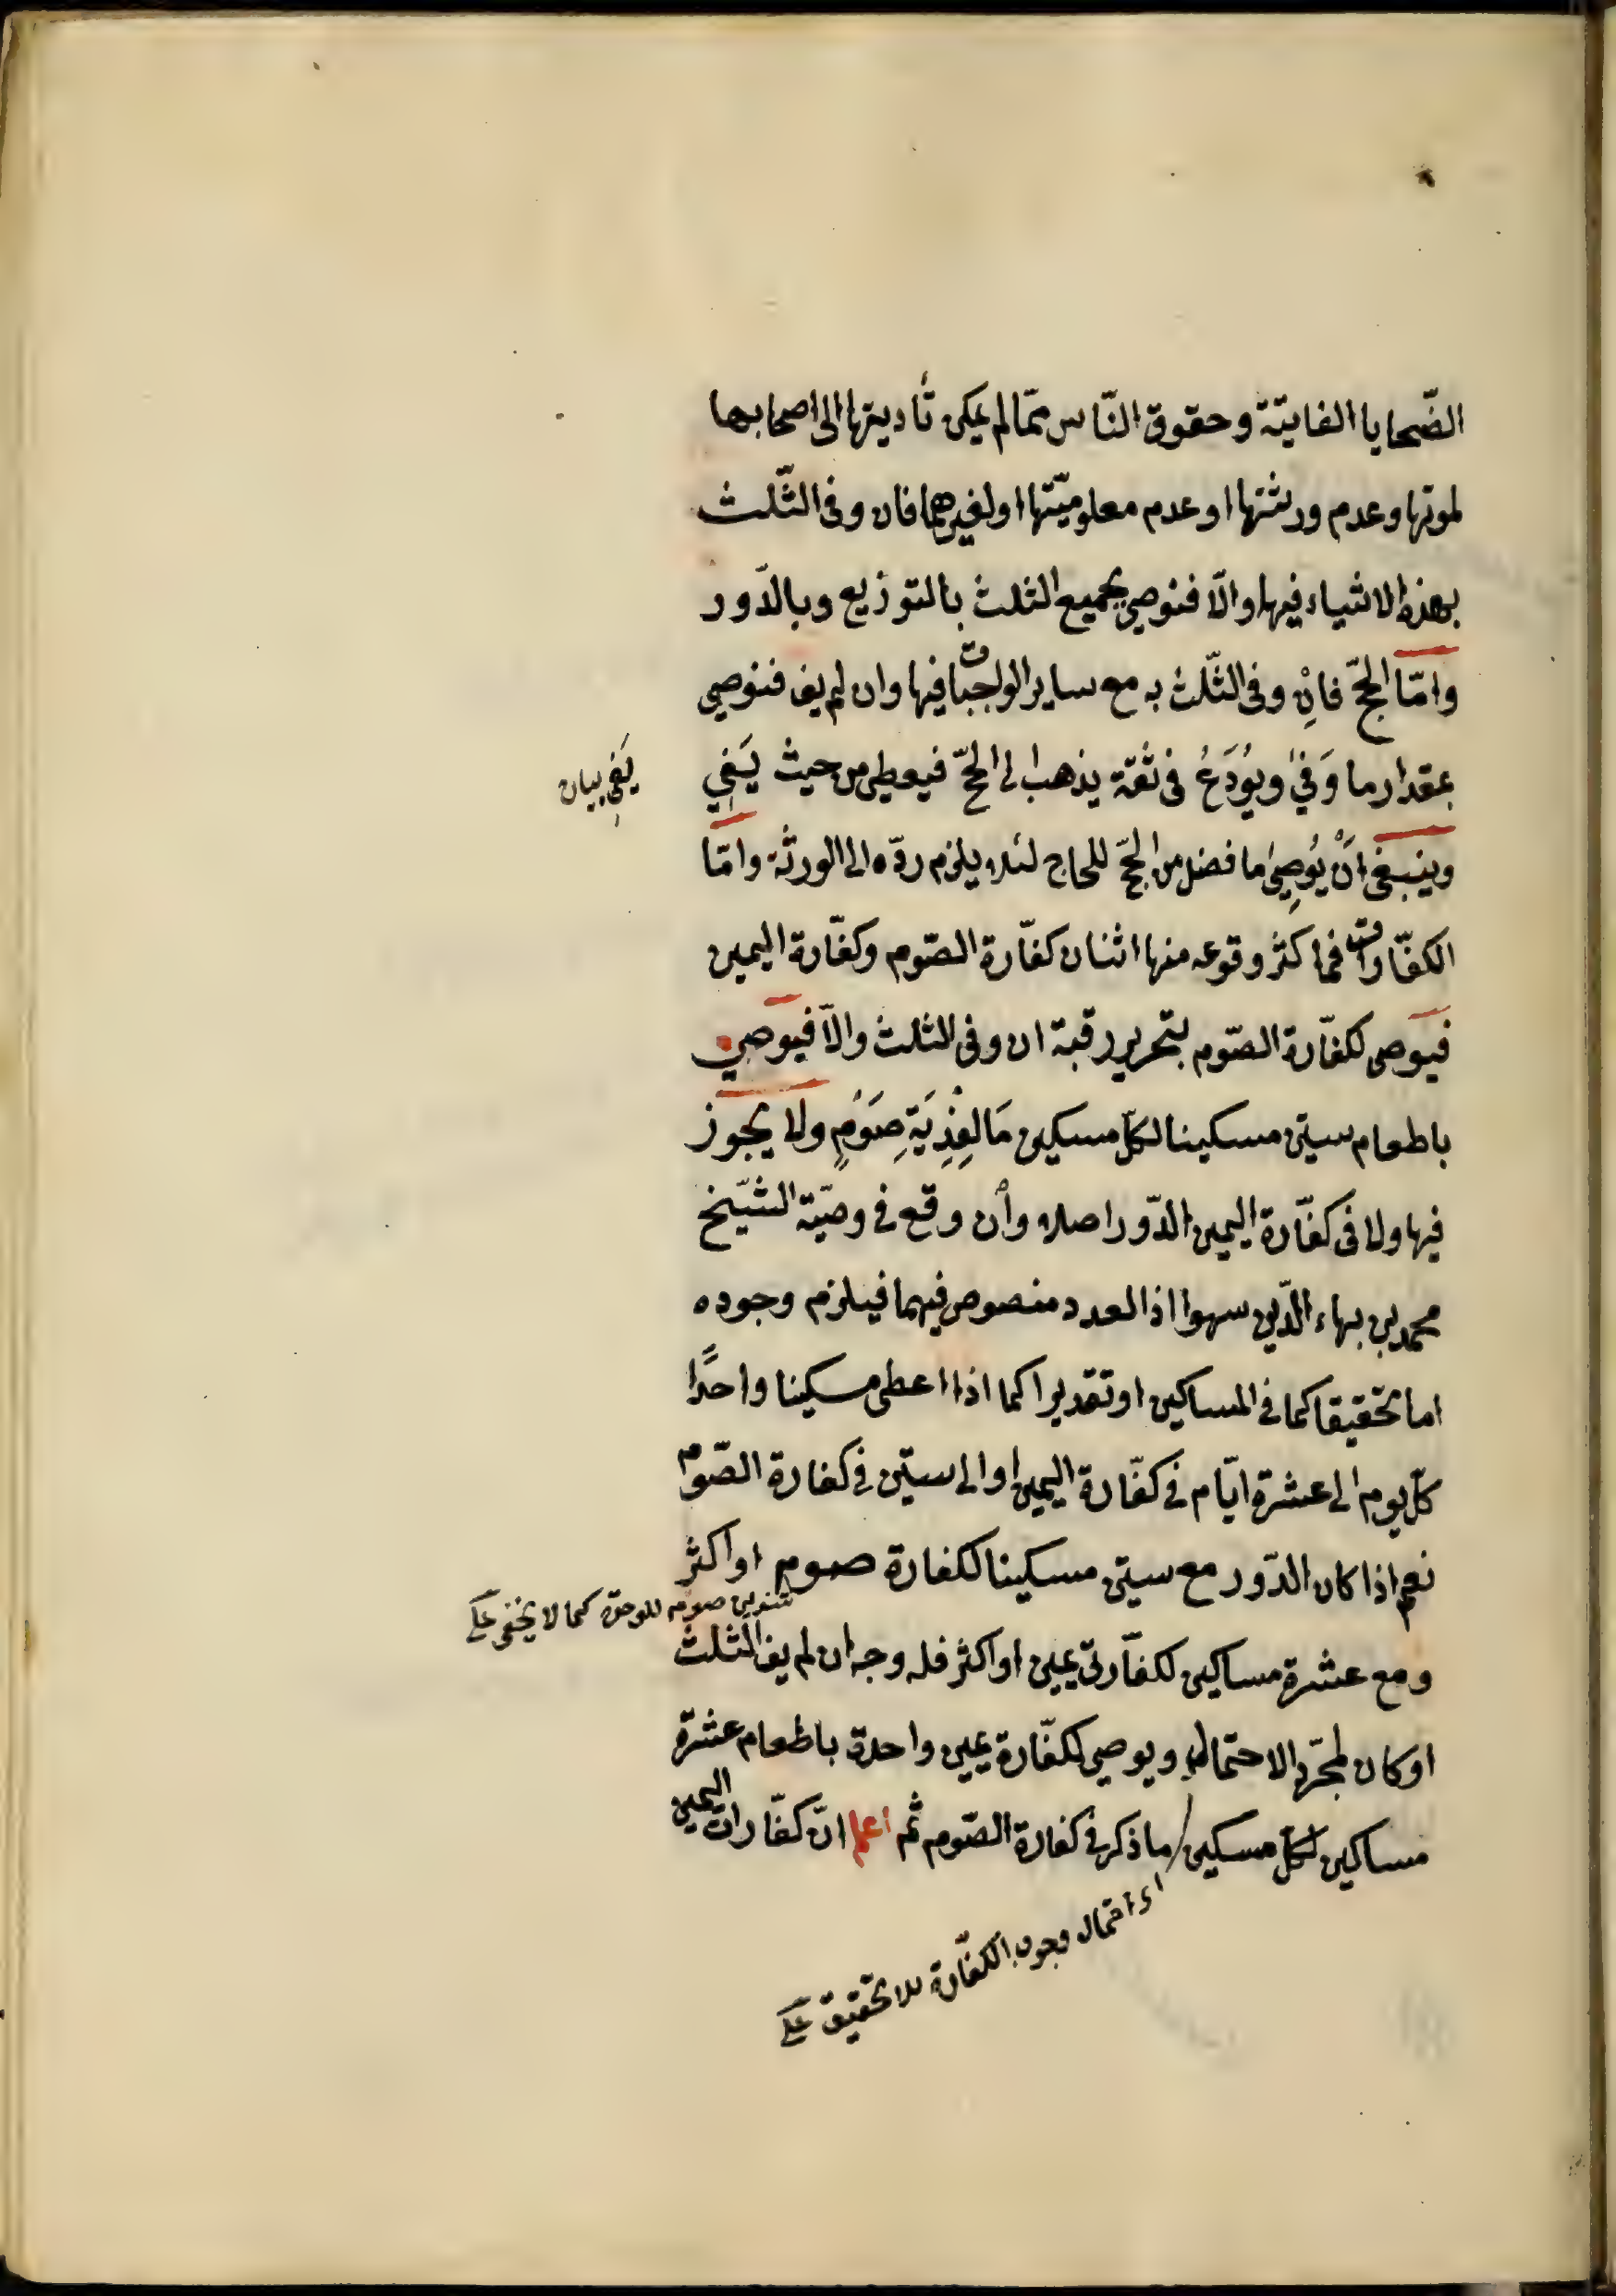 الضّحايا الفايتة وحقوق النّاس ممّا لم يمكن تأديتها الى اصحابها
لموتها وعدم ورثتها او عدم معلوميّتها او لغيرهما فان وفى الثّلث
بهذه الاشياء فيها والّا فنوصي بجميع الثلث بالتوزيع وبالدّور
وامّا الحجّ فاِنْ وفى الثّلث به مع ساير الواجبات فيها وان لم يف فنوصي
بمقدار ما وَفىٰ ويُودَعُ فى ثقة يذهب الى الحجّ فيعطى من حيث يَفِي
يَفِي بيان
وينبغى انْ يُوصِىَ ما فضل من الحجّ للحاج لئلا يلزم ردّه الى الورثة وامّا
الكفّارات فما كثر وقوعه منها اثنان كفّارة الصّوم وكفّارة اليمين
فيوصى لكفّارة الصّوم بتحرير رقبة ان وفى الثلث والّا فيوصي
باطعام ستين مسكينا لكلّ مسكين مَا لِفِدْيَةِ صَوْمٍ ولا يجوز
فيها ولا فى كفّارة اليمين الدّور اصلا وأن وقع فى وصيّة الشّيخ
محمد بن بهاء الدّين سهوا اذ العدد منصوص فيهما فيلزم وجوده
اما تحقيقا كما فى المساكين او تقديرا كما اذا اعطى مسكينا واحدًا
كلّ يوم الى عشرة ايّام فى كفّارة اليمين او الى ستين فى كفارة الصّوم
نعم اذا كان الدّور مع ستين مسكينا لكفارة صوم او اكثر
تنوين صوم للوحدة كما لا يخفى على
ومع عشرة مساكين لكفّارتى يمين او اكثر فله وجه ان لم يف الثلث
او كان لمجرّد الاحتمال ويوصي لكفّارة يمين واحدة باطعام عشرة
مساكين لكلّ مسكين ما ذكر فى كفارة الصّوم ثم اعلم انّ كفّارات اليمين
اى احتمال وجوب الكفّارة للا تحقيق على